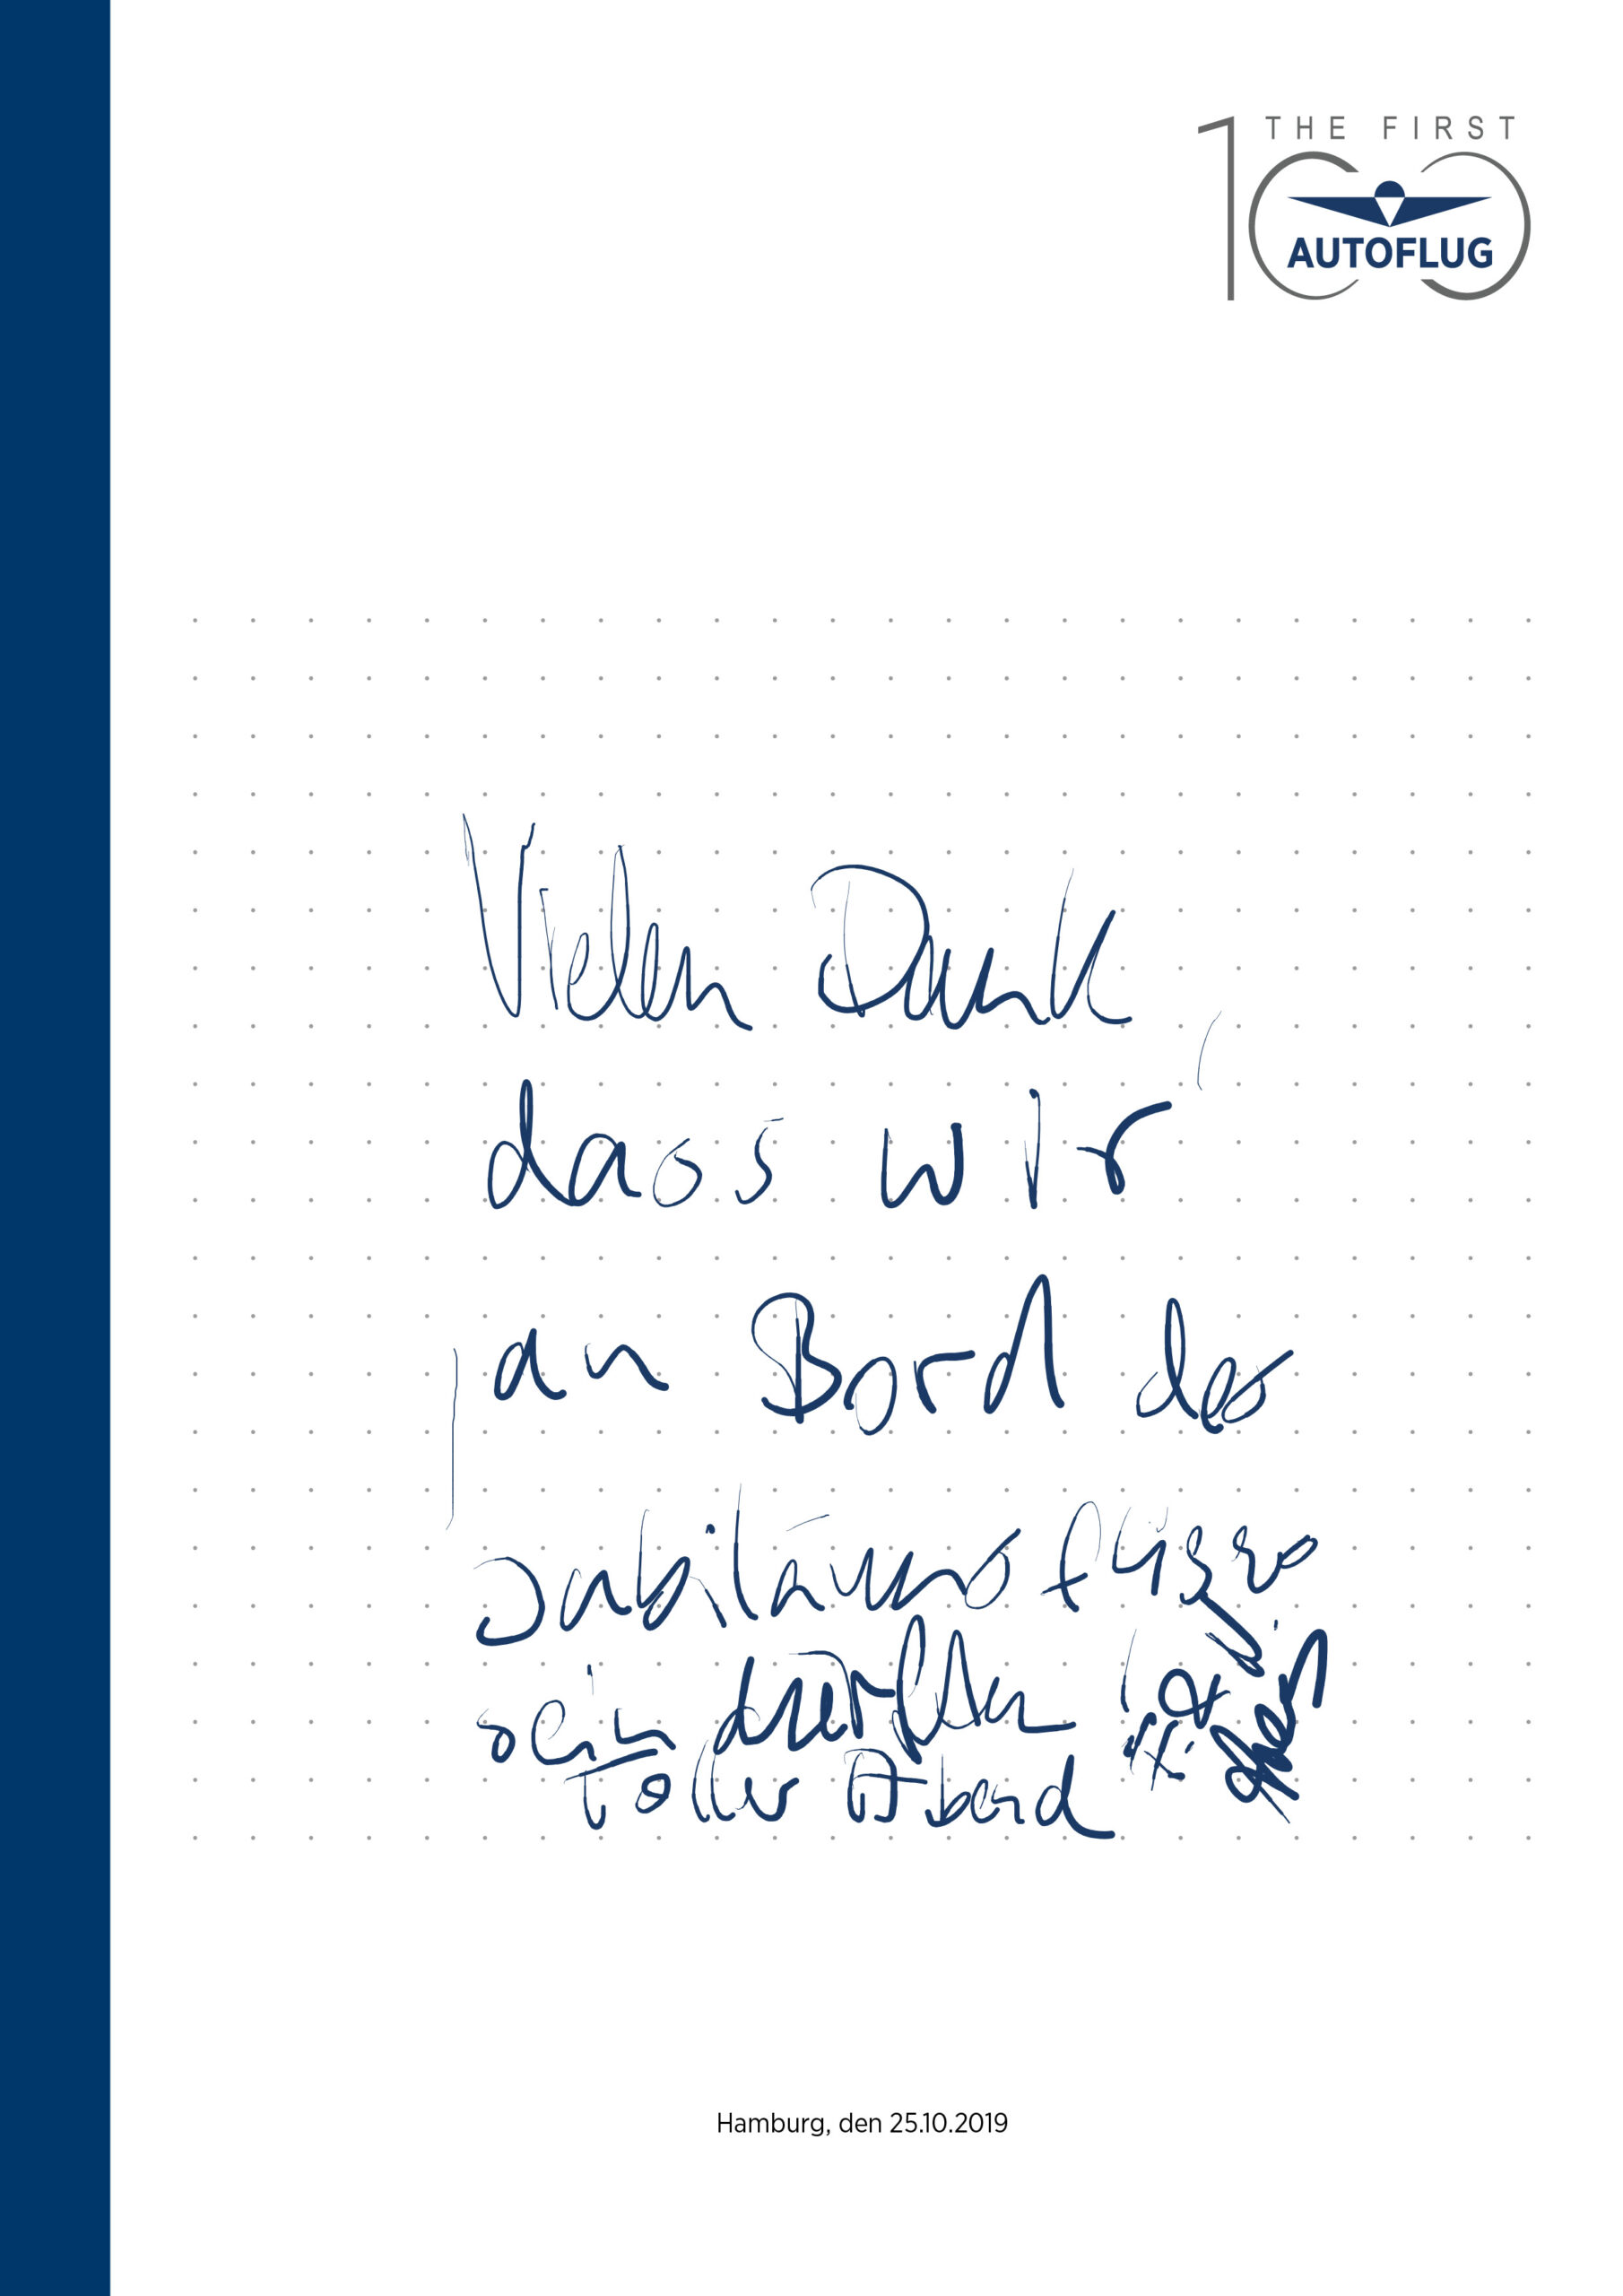 THE FIRST
100
AUTOFLUG
Vielen Dank
dass wir
an Bord des
Jubiläumsfluges
sein durften
Toller Abend
Hamburg, den 25.10.2019